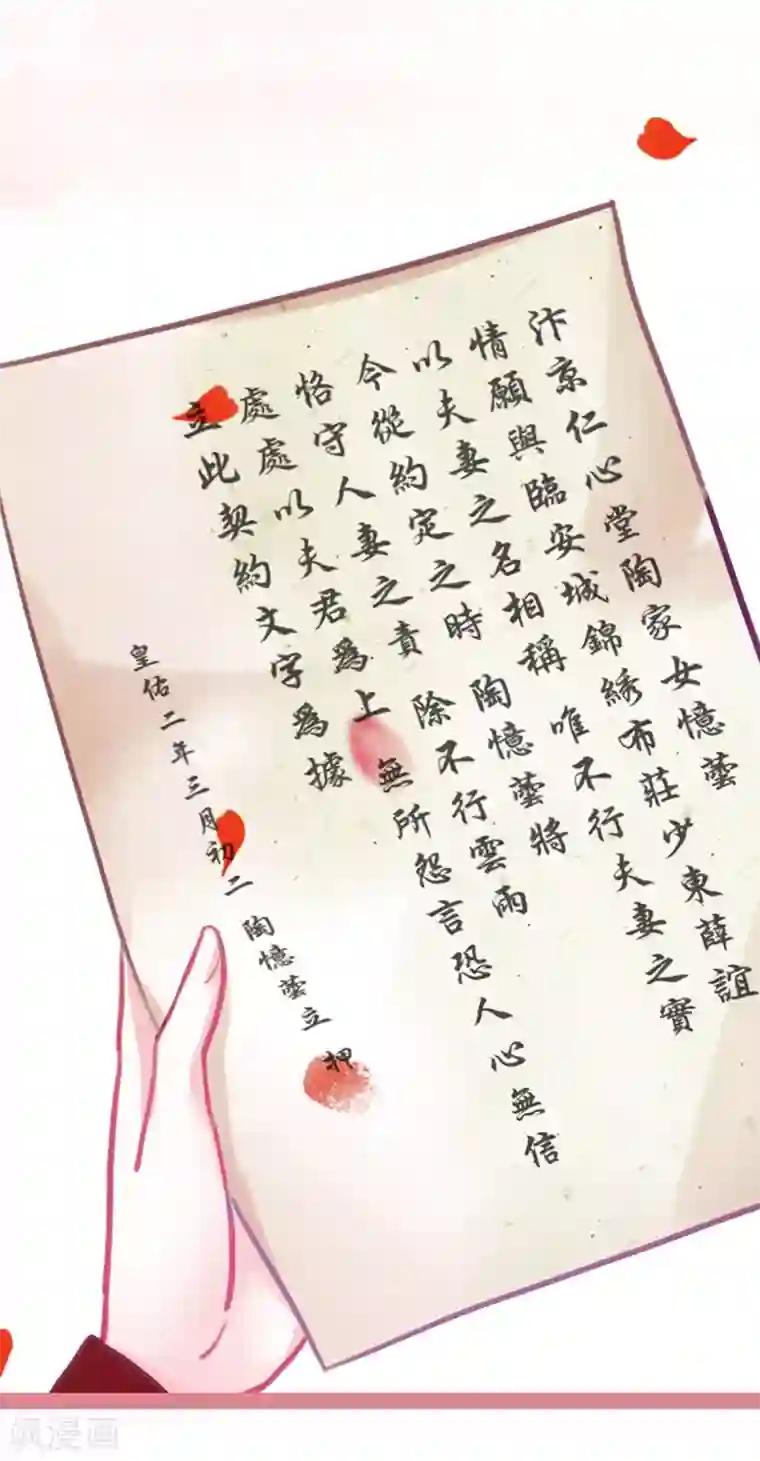 汴京仁心堂陶家女憶蕓
情願與臨安城錦綉布莊少東薛誼
以夫妻之名相稱 唯不行夫妻之實
今從約定之時 陶憶蕓將
恪守人妻之責 除不行雲雨
處處以夫君爲上 無所怨言恐人心無信
立此契約文字爲據
皇佑二年三月初二 陶憶蕓立 押
飒漫画